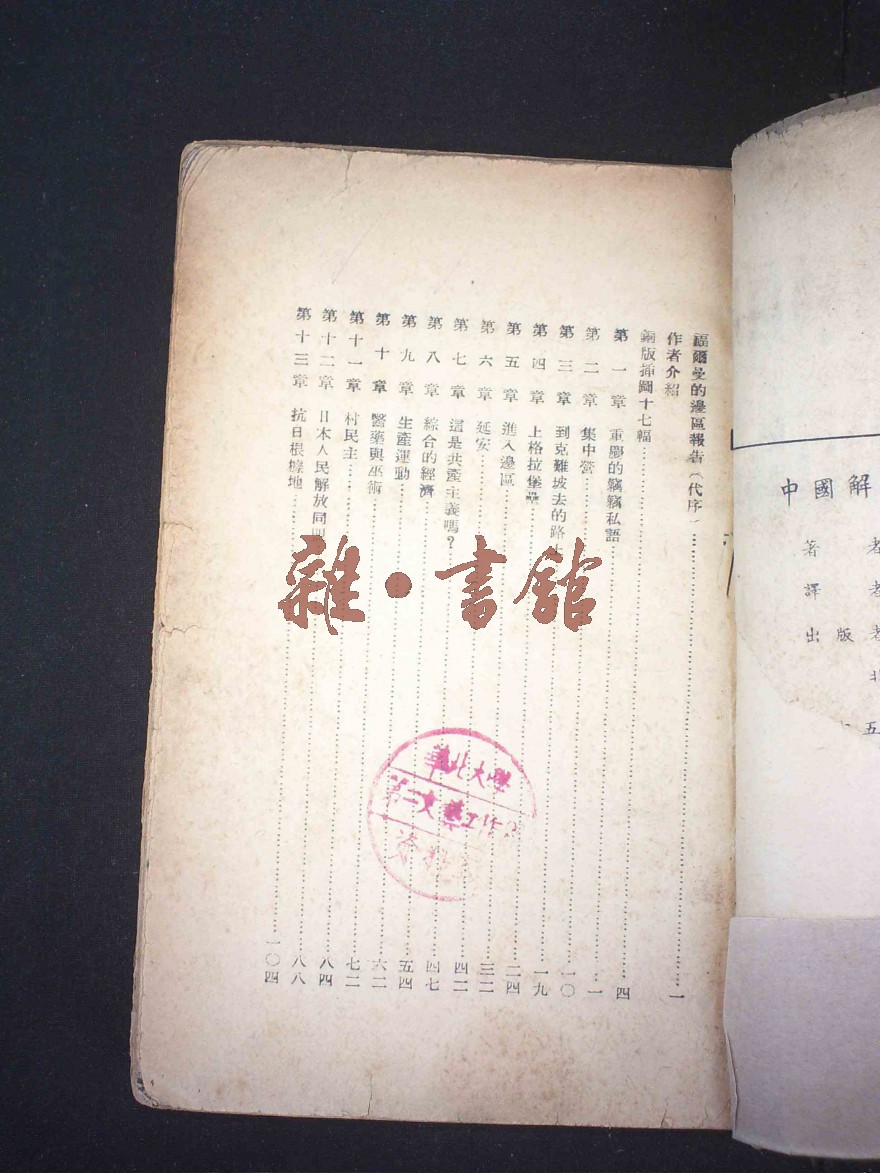 中國解
著 者
譯 者
出版者
五
福爾曼的邊區報告（代序）……一
作者介紹
銅版挿圖十七幅……四
第一章 重慶的竊竊私語……一
第二章 集中營……一〇
第三章 到克難坡去的路……一九
第四章 上格拉堡……二四
第五章 進入邊區……三二
第六章 延安……四二
第七章 這是共產主義嗎？……四七
第八章 綜合的經濟……五四
第九章 生產運動……六二
第十章 醫藥與巫術……七二
第十一章 村民主……八四
第十二章 日本人民解放同……八八
第十三章 抗日根據地……一〇四
雜·書館
華北大學
第二文藝工作